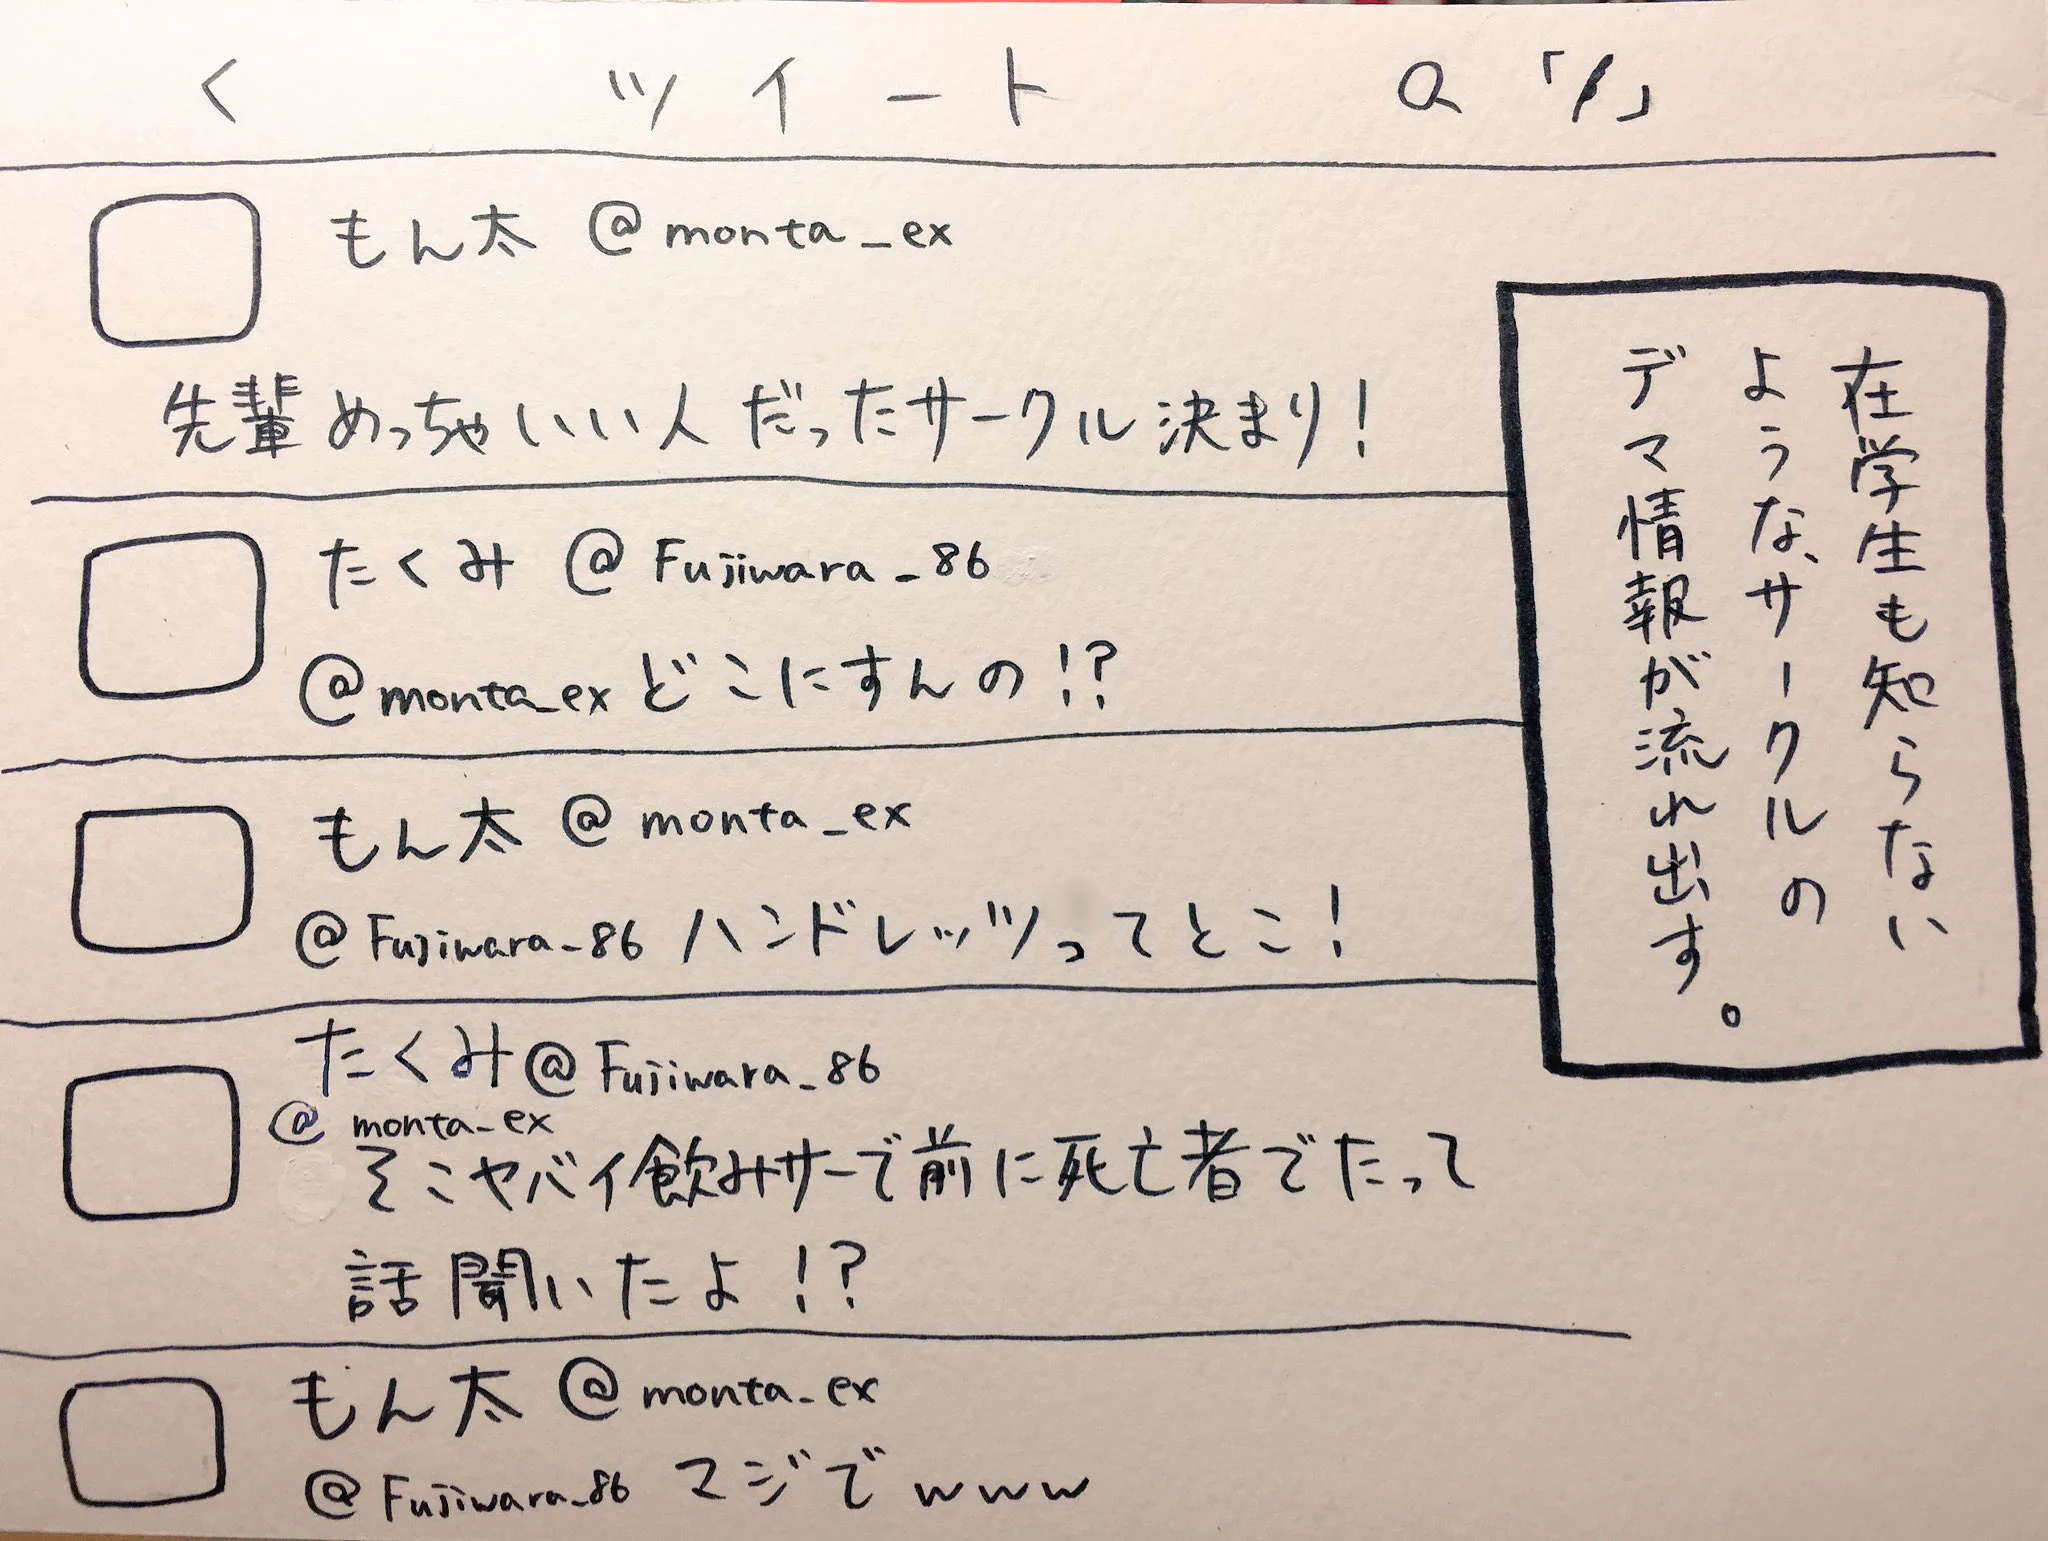 く ツイート Q 「/」
もん太 @monta_ex
先輩めっちゃいい人だったサークル決まり!
たくみ @Fujiwara_86
@monta_ex どこにすんの!?
もん太 @monta_ex
@Fujiwara_86 ハンドレッツってとこ!
たくみ @Fujiwara_86
@monta_ex
そこヤバイ飲みサーで前に死亡者でたって
話聞いたよ!?
もん太 @monta_ex
@Fujiwara_86 マジでwww
在学生も知らない
ような、サークルの
デマ情報が流れ出す。